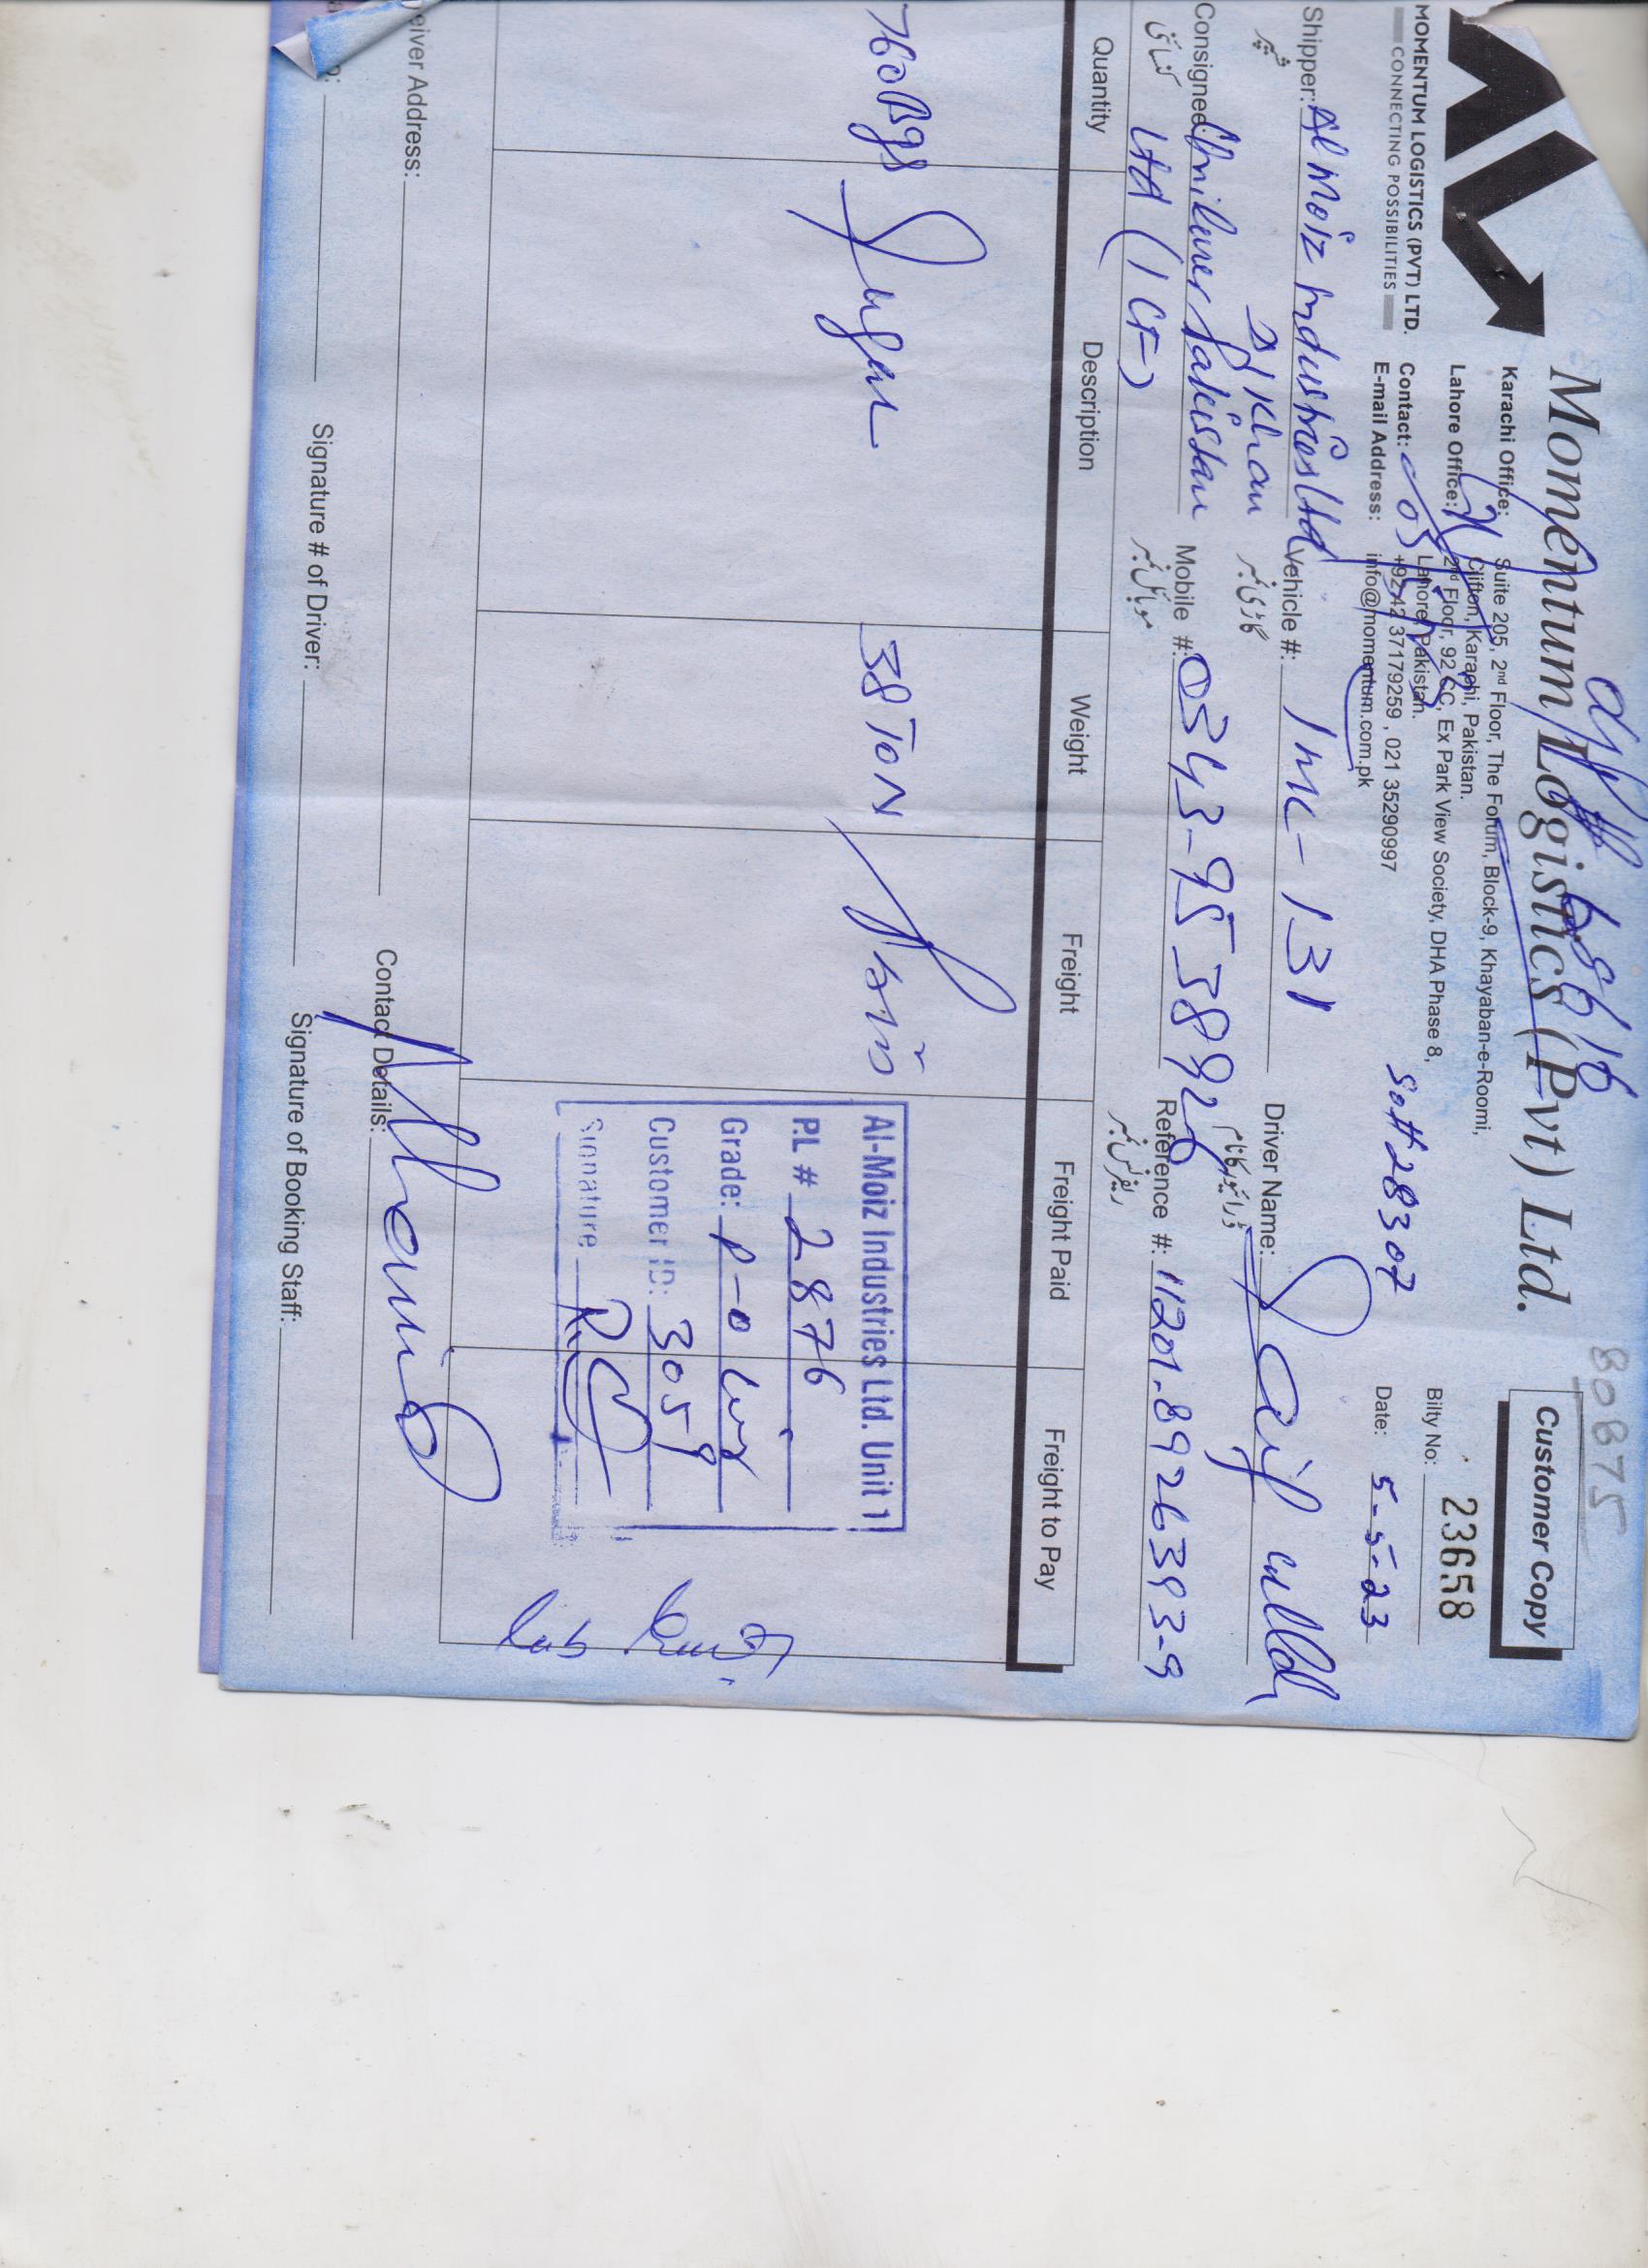 80875
Momentum Logistics (Pvt) Ltd.
Customer Copy
MOMENTUM LOGISTICS (PVT) LTD.
CONNECTING POSSIBILITIES
Karachi Office: Suite 205, 2nd Floor, The Forum, Block-9, Khayaban-e-Roomi,
Clifton, Karachi, Pakistan.
Lahore Office: 2nd Floor, 92 CC, Ex Park View Society, DHA Phase 8,
Lahore, Pakistan.
Contact: +92 42 37179259 , 021 35290997
E-mail Address: info@momentum.com.pk
So# 28307
Bilty No: 23658
Date: 5-5-23
Shipper: Al Moiz Industries Ltd
شپر
D I Khan
Vehicle #:
گاڑی نمبر
Driver Name:
ڈرائیور کا نام
Consignee: Unilever Pakistan
Ltd (ICF)
Mobile #: 0343-9538926
موبائل نمبر
Reference #: 11201-8926393-9
ریفرنس نمبر
Quantity Description Weight Freight Freight Paid Freight to Pay
760 Bgs Sugar 38 TON
Al-Moiz Industries Ltd. Unit 1
P.L # 2876
Grade: P-0
Customer ID: 3059
Signature
eiver Address:
Contact Details:
Signature # of Driver:
Signature of Booking Staff: